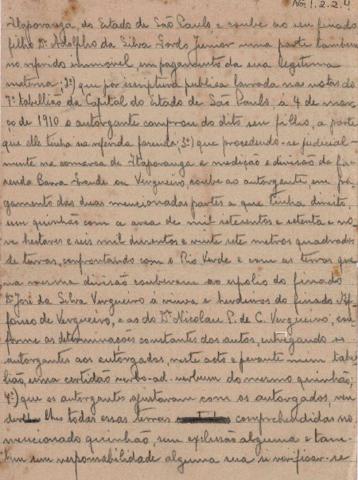 Nº 1.2.2.4
Itaporanga, do Estado de São Paulo e coube ao seu finado
filho Dr. Adolpho da Silva Gordo Junior uma parte tambem
no referido immovel, em pagamento da sua legitima
materna; 2º) que por escriptura publica lavrada nas notas do
7º tabellião da Capital do Estado de São Paulo, à 4 de mar-
ço de 1910 o autorgante comprou do dito seu filho, a parte
que elle tinha na referida fazenda; 3º) que procedendo-se judicial-
mente na comarca de Itaporanga a medição e divisão da fa-
zenda Barra Grande ou Vergueiro, coube ao autorgante, em pa-
gamento das duas mencionadas partes a que tinha direito,
um quinhão com a area de mil setecentos e setenta e no-
ve hectares e seis mil duzentos e vinte sete metros quadrados
de terras, confrontando com o Rio Verde e com as terras que
na mesma divisão couberam ao espolio do finado
Dr. José da Silva Vergueiro á viuva e herdeiros do finado Af-
fonso de Vergueiro, e as do Dr. Nicolau P. de C. Vergueiro, con-
forme as determinações constantes dos autos, entregando os
autorgantes aos autorgados, neste acto e perante mim tabe-
lião, uma certidão verbo-ad-verbum do mesmo quinhão;
4º) que os autorgantes ajustaram com os autorgados, ven-
der lhes todas essas terras comprehendidas no
mencionado quinhão, sem exclusão alguma e tam-
bem sem responsabilidade alguma sua si verificar-se